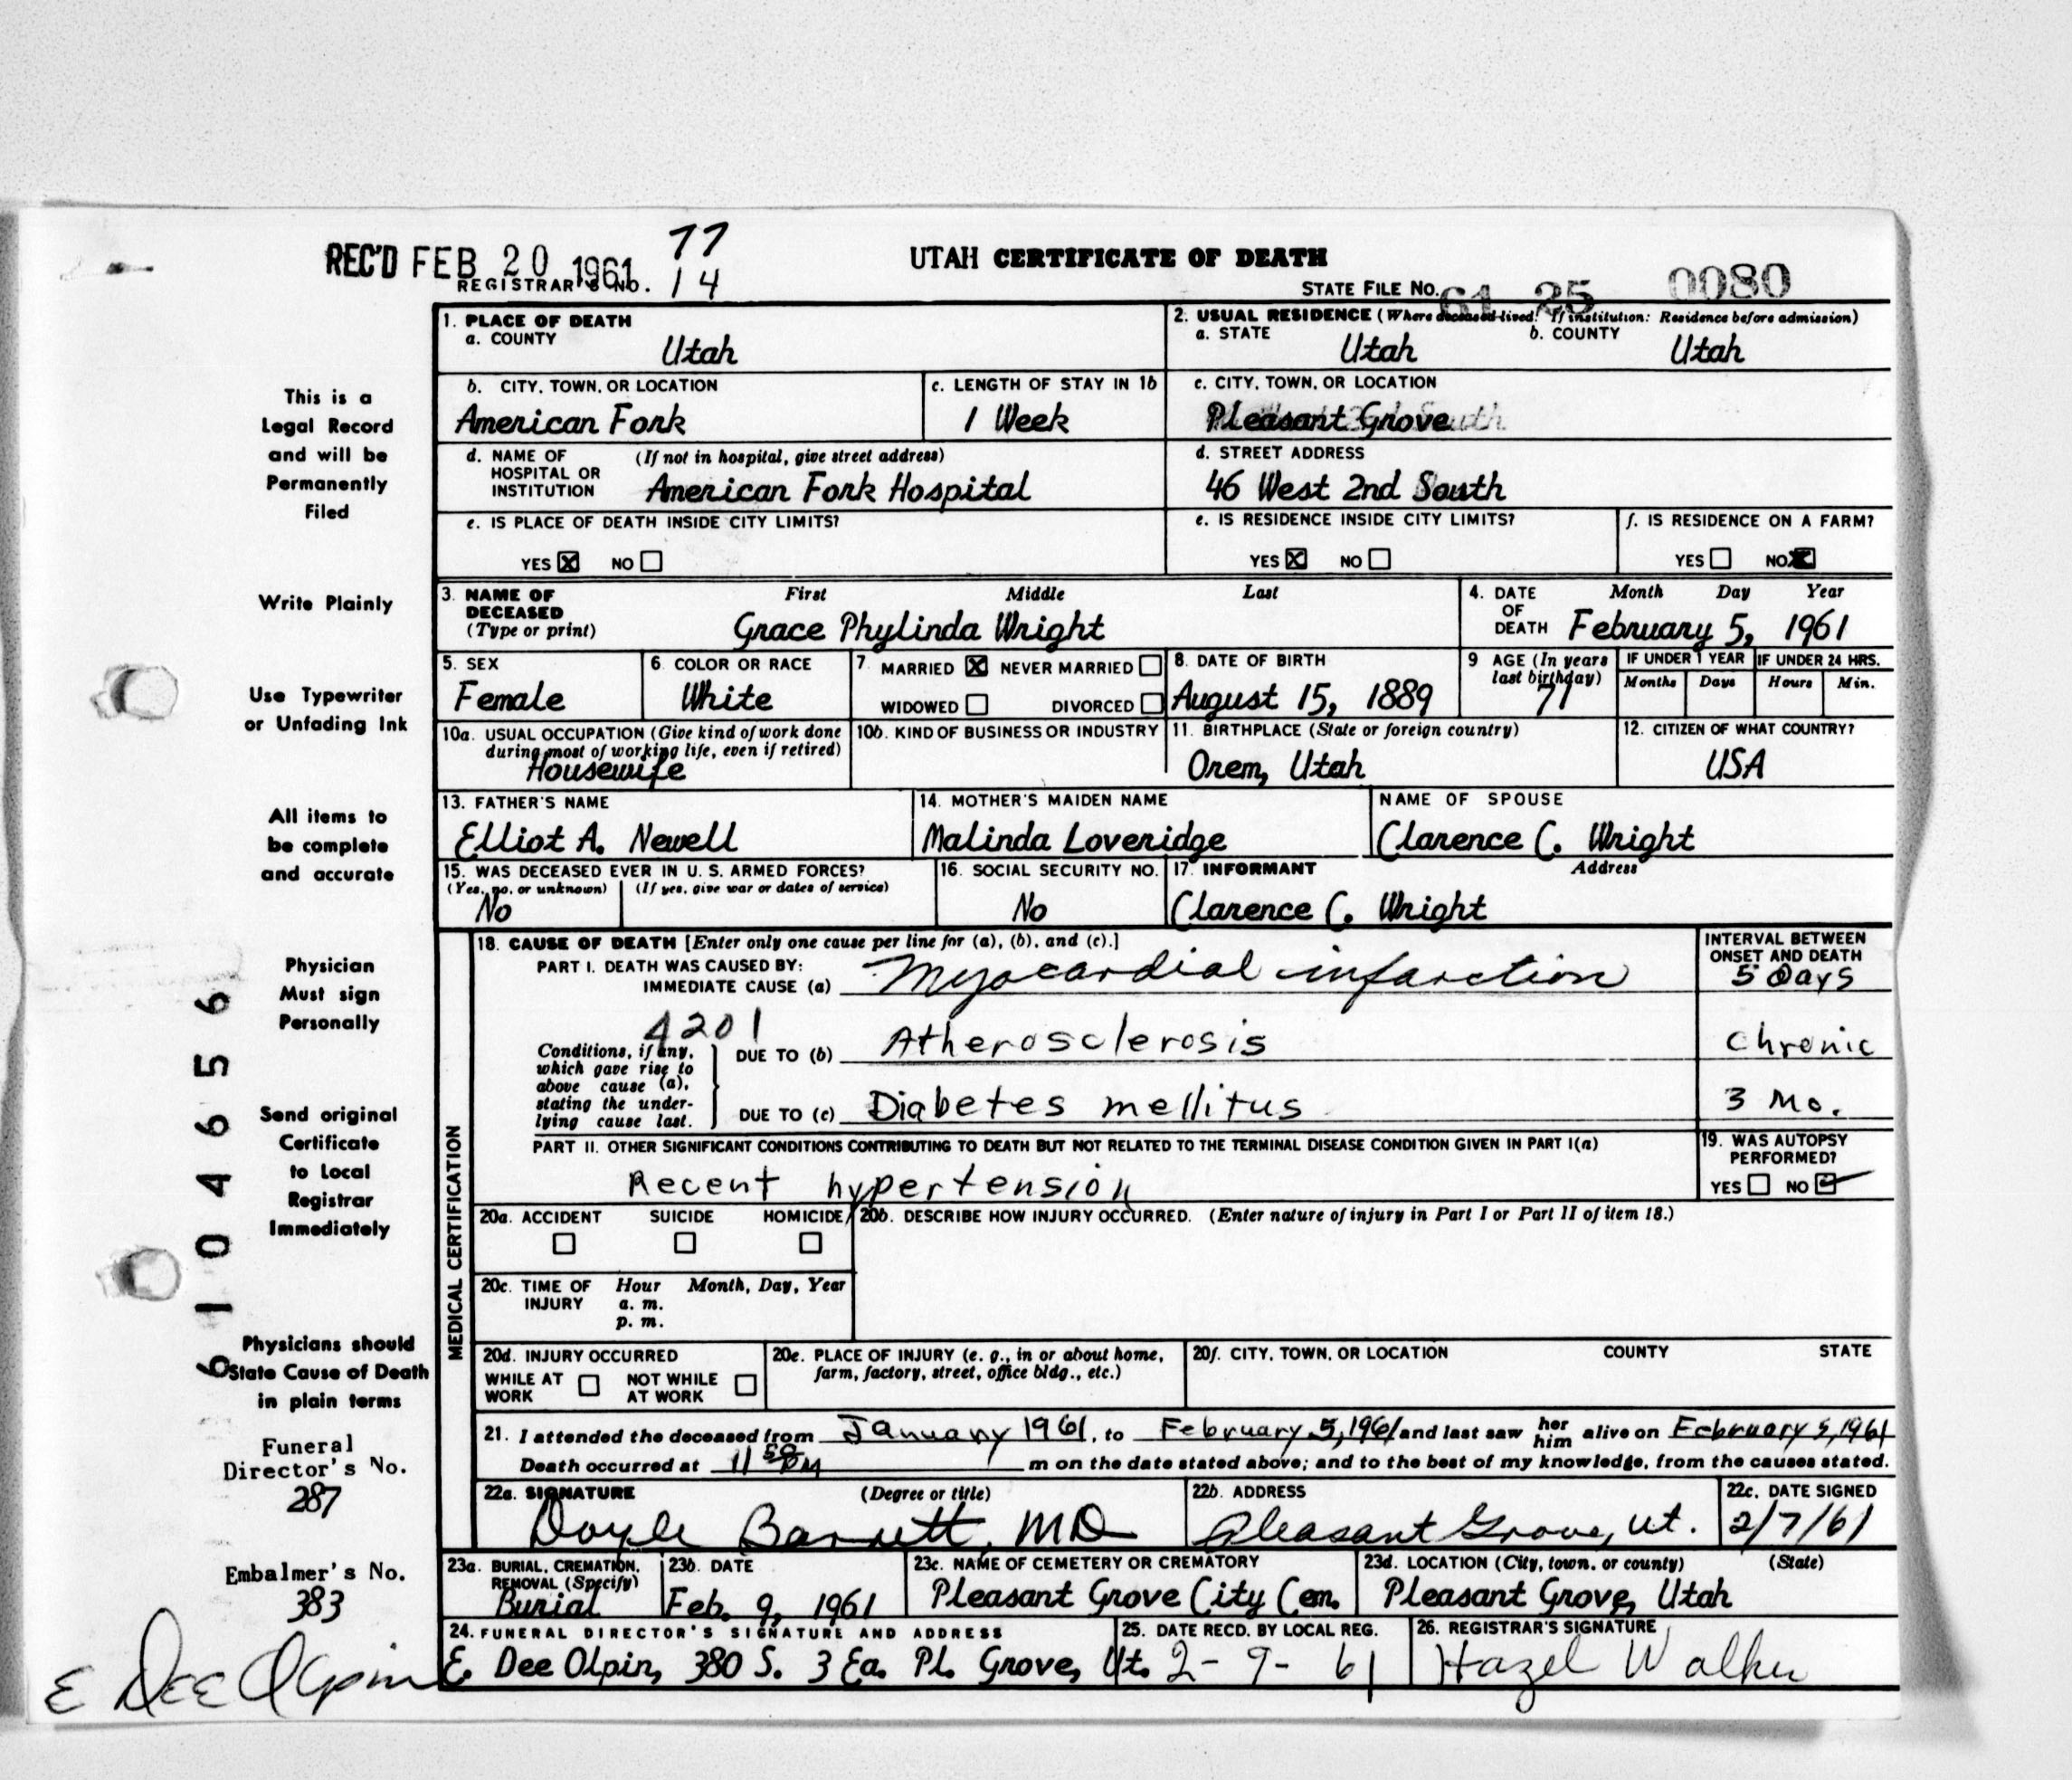 REC'D FEB 20 1961 77
REGISTRAR'S NO. 14
UTAH CERTIFICATE OF DEATH
STATE FILE NO. 61 25 0080
1. PLACE OF DEATH
a. COUNTY
Utah
2. USUAL RESIDENCE (Where deceased lived. If institution: Residence before admission)
a. STATE Utah b. COUNTY Utah
b. CITY, TOWN, OR LOCATION
American Fork
c. LENGTH OF STAY IN 1b
1 Week
c. CITY, TOWN, OR LOCATION
Pleasant Grove
d. NAME OF HOSPITAL OR INSTITUTION (If not in hospital, give street address)
American Fork Hospital
d. STREET ADDRESS
46 West 2nd South
e. IS PLACE OF DEATH INSIDE CITY LIMITS?
YES X NO
e. IS RESIDENCE INSIDE CITY LIMITS?
YES X NO
f. IS RESIDENCE ON A FARM?
YES NO X
3. NAME OF DECEASED (Type or print) First Middle Last
Grace Phylinda Wright
4. DATE OF DEATH Month Day Year
February 5, 1961
5. SEX
Female
6. COLOR OR RACE
White
7. MARRIED X NEVER MARRIED
WIDOWED DIVORCED
8. DATE OF BIRTH
August 15, 1889
9 AGE (In years last birthday)
71
IF UNDER 1 YEAR IF UNDER 24 HRS.
Months Days Hours Min.
10a. USUAL OCCUPATION (Give kind of work done during most of working life, even if retired)
Housewife
10b. KIND OF BUSINESS OR INDUSTRY
11. BIRTHPLACE (State or foreign country)
Orem, Utah
12. CITIZEN OF WHAT COUNTRY?
USA
13. FATHER'S NAME
Elliot A. Newell
14. MOTHER'S MAIDEN NAME
Malinda Loveridge
NAME OF SPOUSE
Clarence C. Wright
15. WAS DECEASED EVER IN U. S. ARMED FORCES?
(Yes, no, or unknown) (If yes, give war or dates of service)
No
16. SOCIAL SECURITY NO.
No
17. INFORMANT Address
Clarence C. Wright
MEDICAL CERTIFICATION
18. CAUSE OF DEATH [Enter only one cause per line for (a), (b), and (c).]
INTERVAL BETWEEN ONSET AND DEATH
PART I. DEATH WAS CAUSED BY:
IMMEDIATE CAUSE (a) Myocardial infarction 5 Days
4201
Conditions, if any, which gave rise to above cause (a), stating the underlying cause last.
DUE TO (b) Atherosclerosis Chronic
DUE TO (c) Diabetes mellitus 3 Mo.
PART II. OTHER SIGNIFICANT CONDITIONS CONTRIBUTING TO DEATH BUT NOT RELATED TO THE TERMINAL DISEASE CONDITION GIVEN IN PART I(a)
Recent hypertension
19. WAS AUTOPSY PERFORMED?
YES NO ✓
20a. ACCIDENT SUICIDE HOMICIDE
20b. DESCRIBE HOW INJURY OCCURRED. (Enter nature of injury in Part I or Part II of item 18.)
20c. TIME OF INJURY Hour Month, Day, Year
a. m.
p. m.
20d. INJURY OCCURRED
WHILE AT WORK NOT WHILE AT WORK
20e. PLACE OF INJURY (e. g., in or about home, farm, factory, street, office bldg., etc.)
20f. CITY, TOWN, OR LOCATION COUNTY STATE
21. I attended the deceased from January 1961, to February 5, 1961 and last saw her him alive on February 5, 1961
Death occurred at 11 50 PM m on the date stated above; and to the best of my knowledge, from the causes stated.
22a. SIGNATURE (Degree or title)
Doyle Barrett, MD
22b. ADDRESS
Pleasant Grove, Ut.
22c. DATE SIGNED
2/7/61
23a. BURIAL, CREMATION, REMOVAL (Specify)
Burial
23b. DATE
Feb. 9, 1961
23c. NAME OF CEMETERY OR CREMATORY
Pleasant Grove City Cem.
23d. LOCATION (City, town, or county) (State)
Pleasant Grove, Utah
24. FUNERAL DIRECTOR'S SIGNATURE AND ADDRESS
E. Dee Olpin, 380 S. 3 Ea. Pl. Grove, Ut.
25. DATE RECD. BY LOCAL REG.
2-9-61
26. REGISTRAR'S SIGNATURE
Hazel Walker
This is a
Legal Record
and will be
Permanently
Filed
Write Plainly
Use Typewriter
or Unfading Ink
All items to
be complete
and accurate
Physician
Must sign
Personally
Send original
Certificate
to Local
Registrar
Immediately
Physicians should
State Cause of Death
in plain terms
Funeral
Director's No.
287
Embalmer's No.
383
E Dee Olpin
6 1 0 4 6 5 5 6